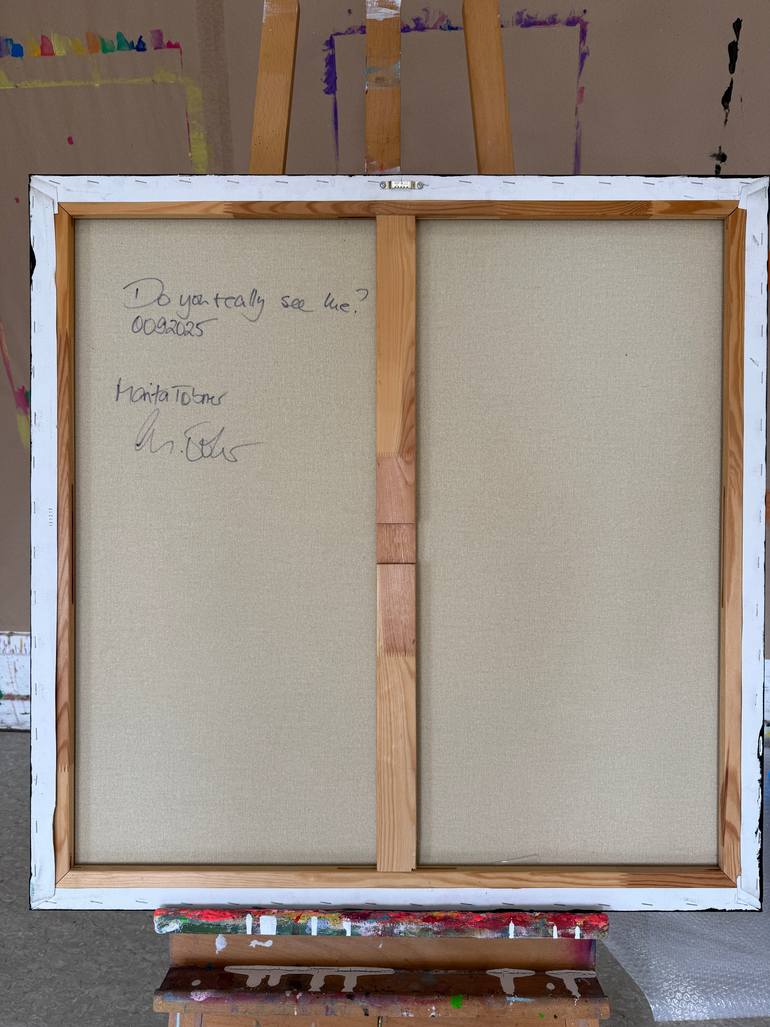 Do you really see me?
0092025
Marita Tobner